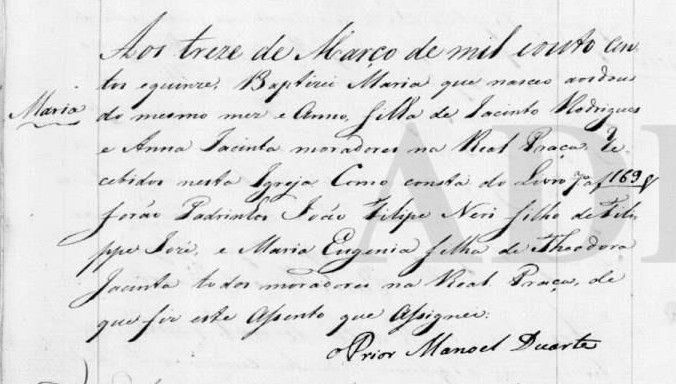 Aos treze de Março de mil e outo cen
tos e quinze, Baptizei Maria que nasceo aos dous
Maria
do mesmo mez e Anno, filha de Jacinto Rodrigues
e Anna Jacinta moradores na Real Praça, Re
cebidos nesta Igreja Como consta do Livro 7º af 169 V
forão Padrinhos João Filipe Neri filho de Feli
ppe Jozé, e Maria Eugenia filha de Theodora
Jacinta todos moradores na Real Praça, de
que fiz este Assento que Assignei.
o Prior Manoel Duarte
AD